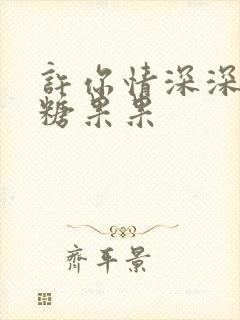 許你情深深
糖果果
齊平景